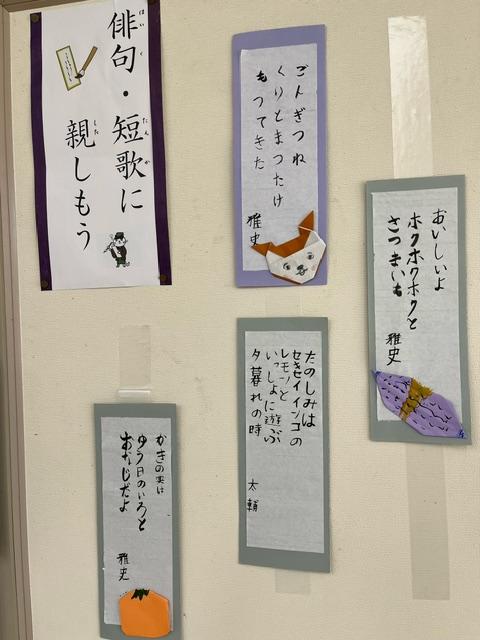 俳句・短歌に
親しもう
ごんぎつね
くりとまつたけ
もつてきた
雅史
おいしいよ
ホクホクホクと
さつまいも
雅史
たのしみは
セキセイインコの
レモンと
いっしょに遊ぶ
夕暮れの時
太輔
かきの実は
ゆう日のいろと
おなじだよ
雅史